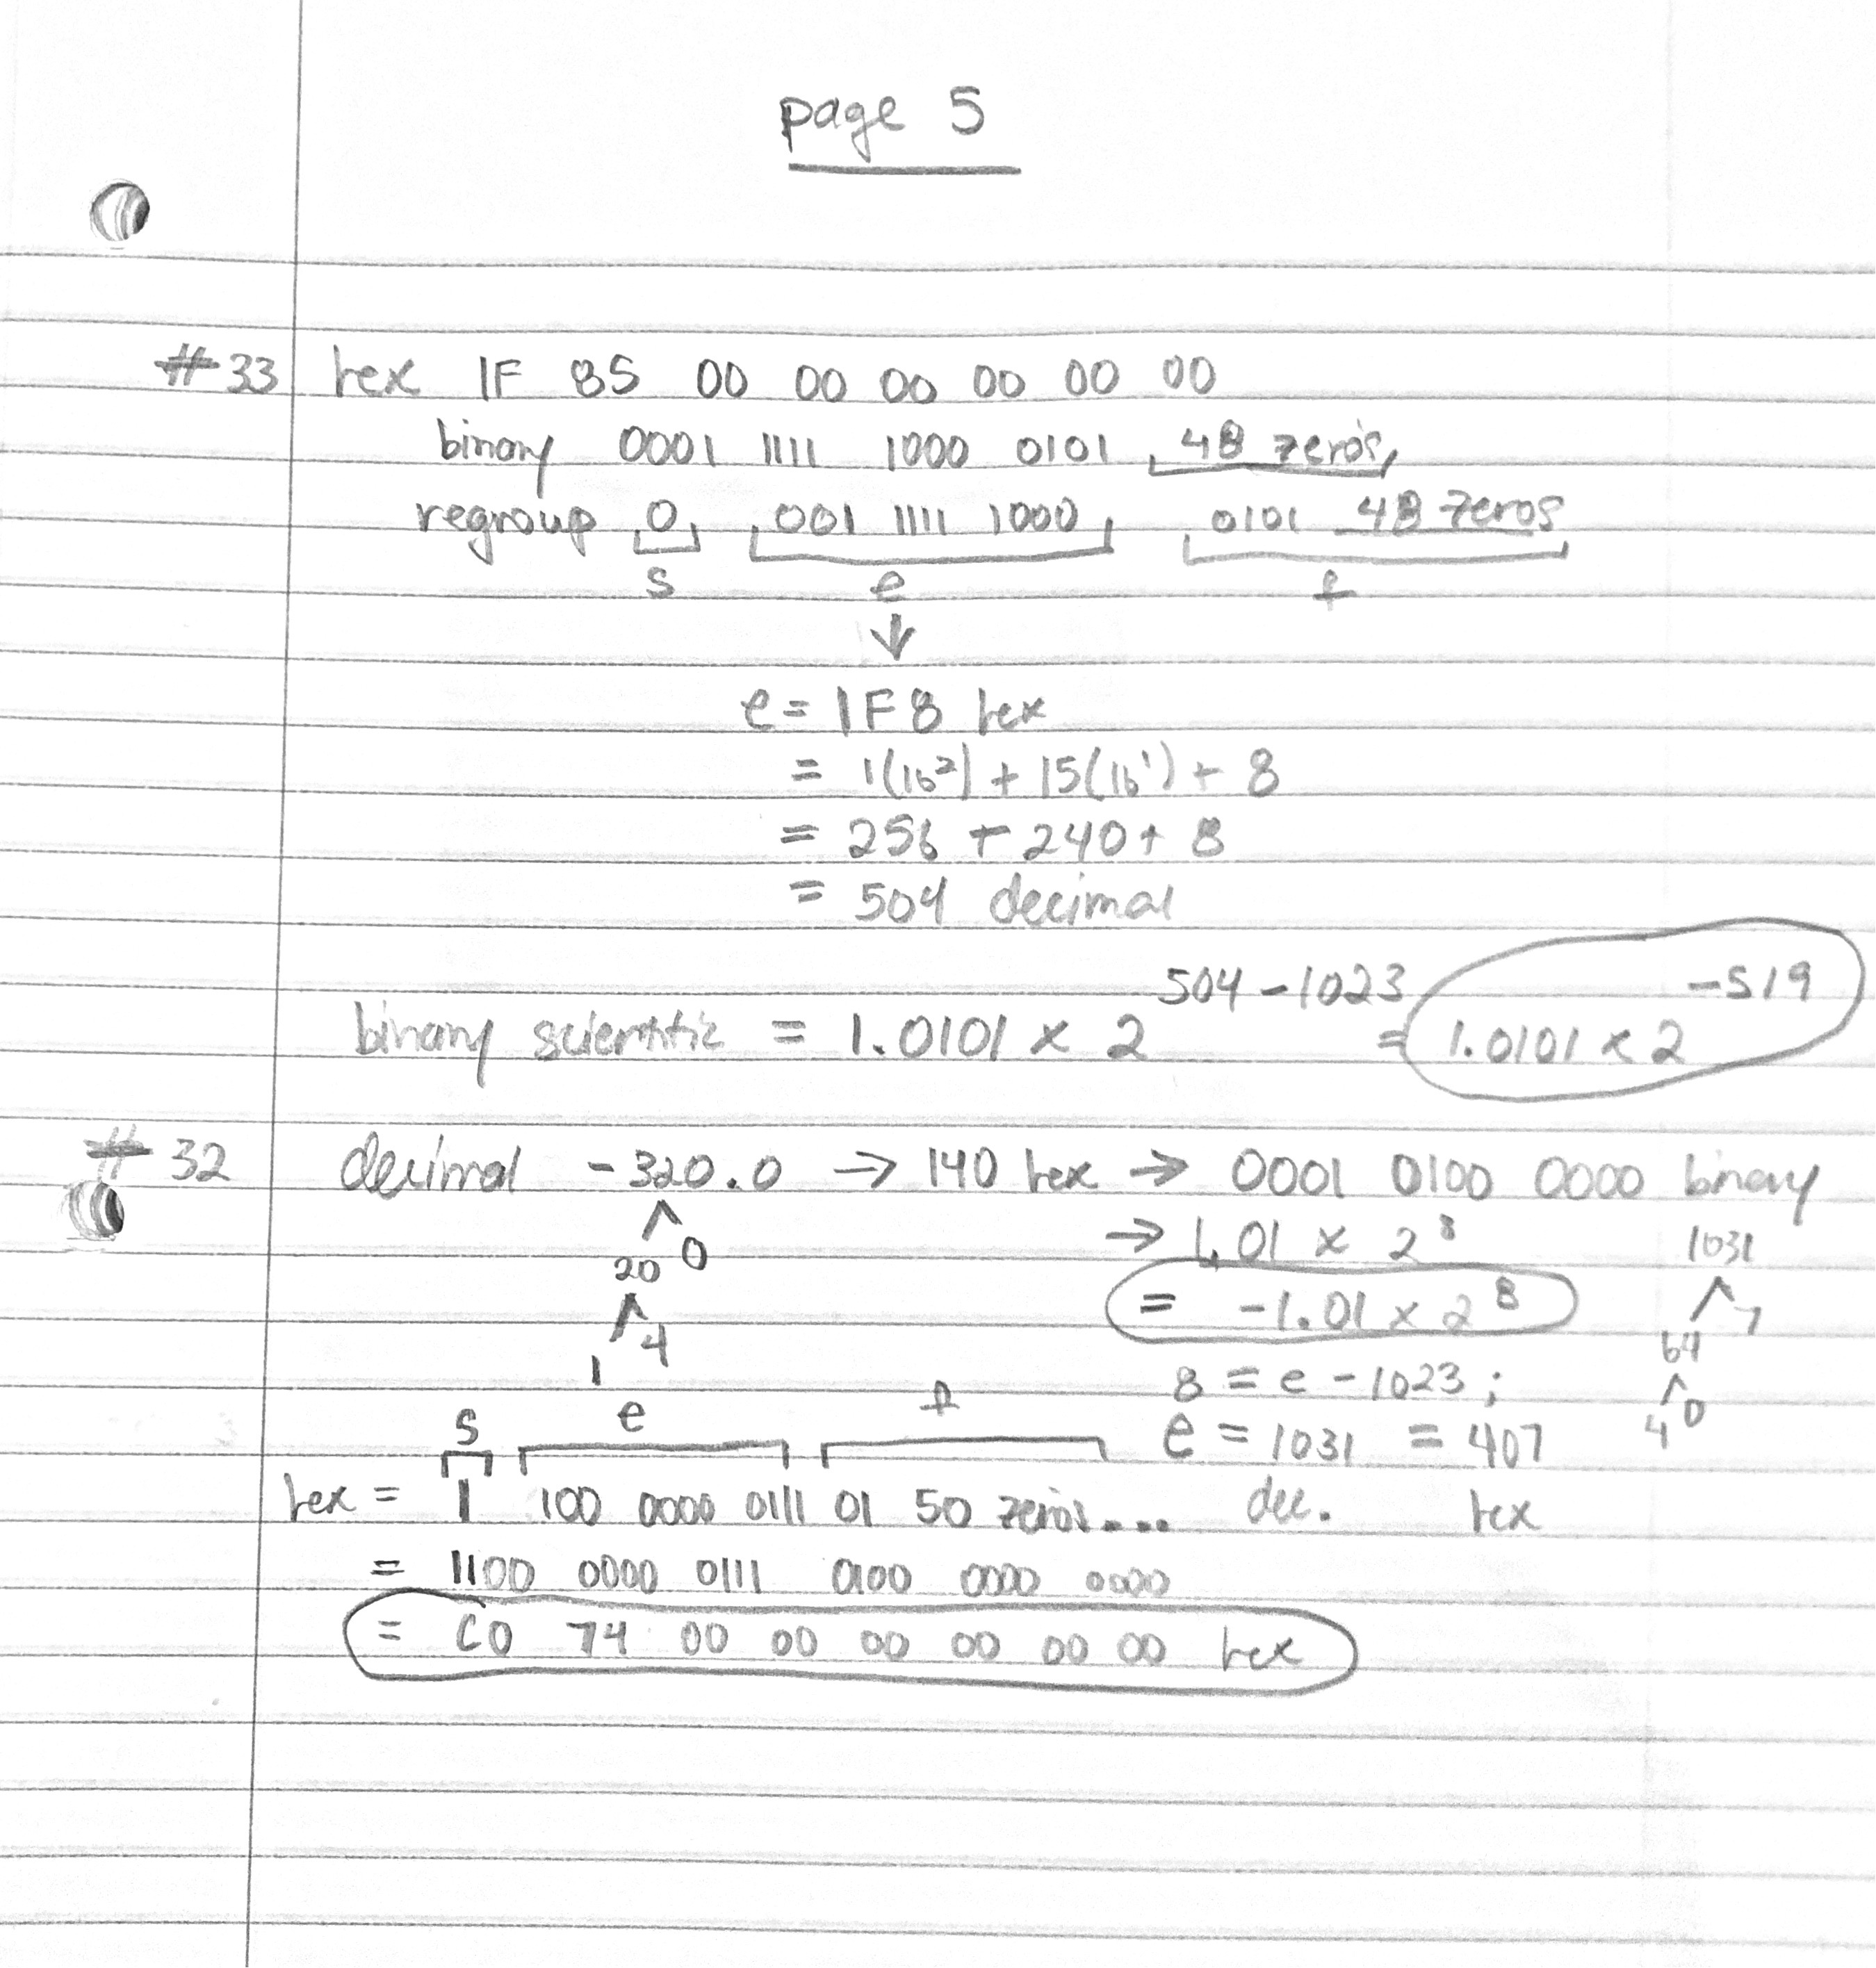 page 5
#33 hex 1F 85 00 00 00 00 00 00
binary 0001 1111 1000 0101 48 zeros
regroup 0 001 1111 1000 0101 48 zeros
s e f
↓
e = 1F8 hex
= 1(16²) + 15(16¹) + 8
= 256 + 240 + 8
= 504 decimal
binary scientific = 1.0101 x 2^504-1023 = 1.0101 x 2^-519
#32 decimal -320.0 → 140 hex → 0001 0100 0000 binary
20 0
→ 1.01 x 2^8
1031
1 4
= -1.01 x 2^8
64 7
8 = e - 1023;
4 0
s e f
e = 1031 = 407
dec. hex
hex = 1 100 0000 0111 01 50 zeros...
= 1100 0000 0111 0100 0000 0000
= C0 74 00 00 00 00 00 00 hex